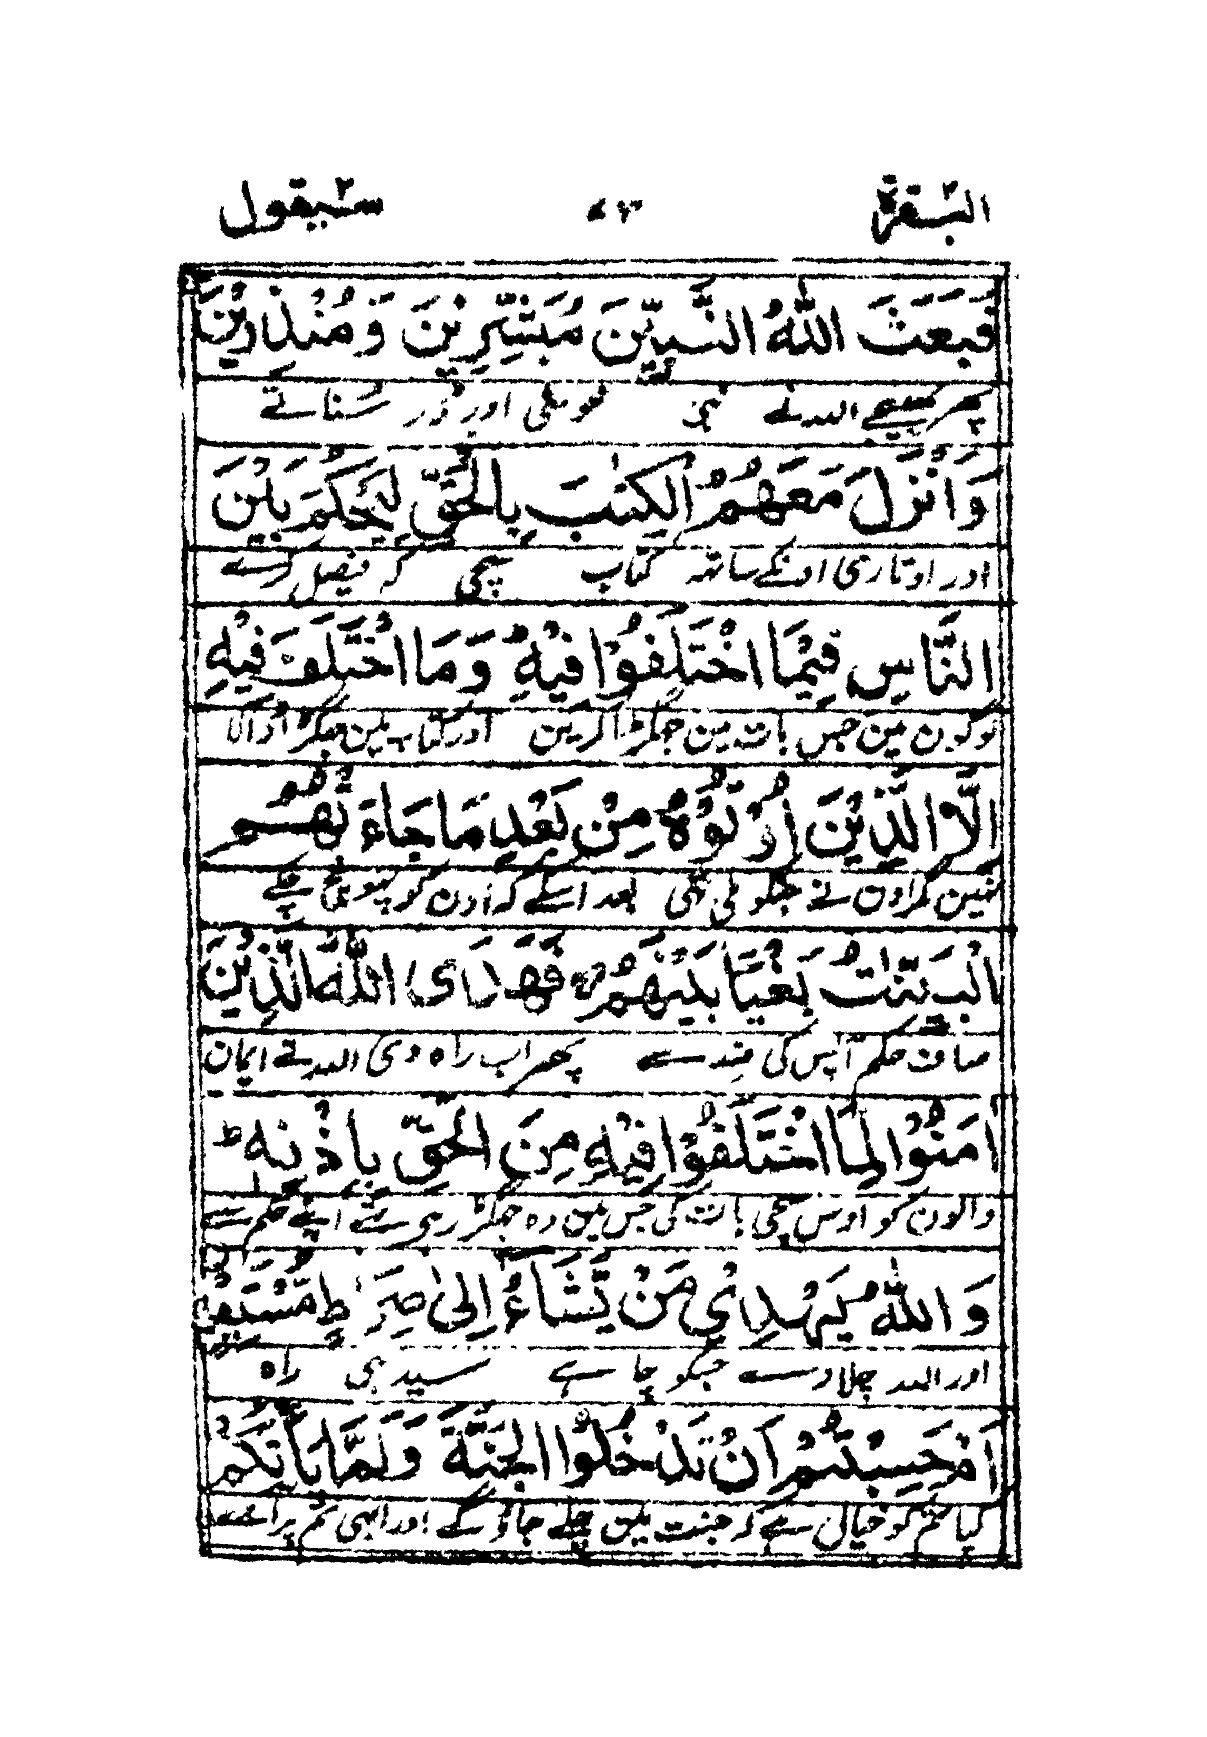 البقرة ٢ ٤٣ سيقول ٢
فَبَعَثَ اللّٰهُ النَّبِيّٖنَ مُبَشِّرِيْنَ وَمُنْذِرِيْنَ
پھر بھیجے اللہ نے نبی خوشی اور ڈر سناتے
وَاَنْزَلَ مَعَهُمُ الْكِتٰبَ بِالْحَقِّ لِيَحْكُمَ بَيْنَ
اور اوتاری اونکے ساتھہ کتاب سچی کہ فیصل کرے
النَّاسِ فِيْمَا اخْتَلَفُوْا فِيْهِ وَمَا اخْتَلَفَ فِيْهِ
لوگون مین جس بات مین جھگڑا کرین اور کتاب مین جھگڑا
اِلَّا الَّذِيْنَ اُوْتُوْهُ مِنْ بَعْدِ مَا جَاءَتْهُمُ
نہین مگر اون نے جنکو ملی تھی بعد اسکے کہ اون کو پہونچ چکے
الْبَيِّنٰتُ بَغْيًا بَيْنَهُمْ فَهَدَى اللّٰهُ الَّذِيْنَ
صاف حکم آپس کی ضد سے پھر اب راہ دی اللہ نے ایمان
اٰمَنُوْا لِمَا اخْتَلَفُوْا فِيْهِ مِنَ الْحَقِّ بِاِذْنِهٖ ط
والون کو اوس سچی بات کی جس مین وہ جھگڑ رہی تھے اپنے حکم سے
وَاللّٰهُ يَهْدِيْ مَنْ يَّشَاءُ اِلٰى صِرَاطٍ مُّسْتَقِيْمٍ
اور اللہ چلاوے جسکو چاہے سیدہی راہ
اَمْ حَسِبْتُمْ اَنْ تَدْخُلُوا الْجَنَّةَ وَلَمَّا يَأْتِكُمْ
کیا تم کو خیال ہے کہ جنت مین چلے جاؤگے اور ابھی تم پر آئے